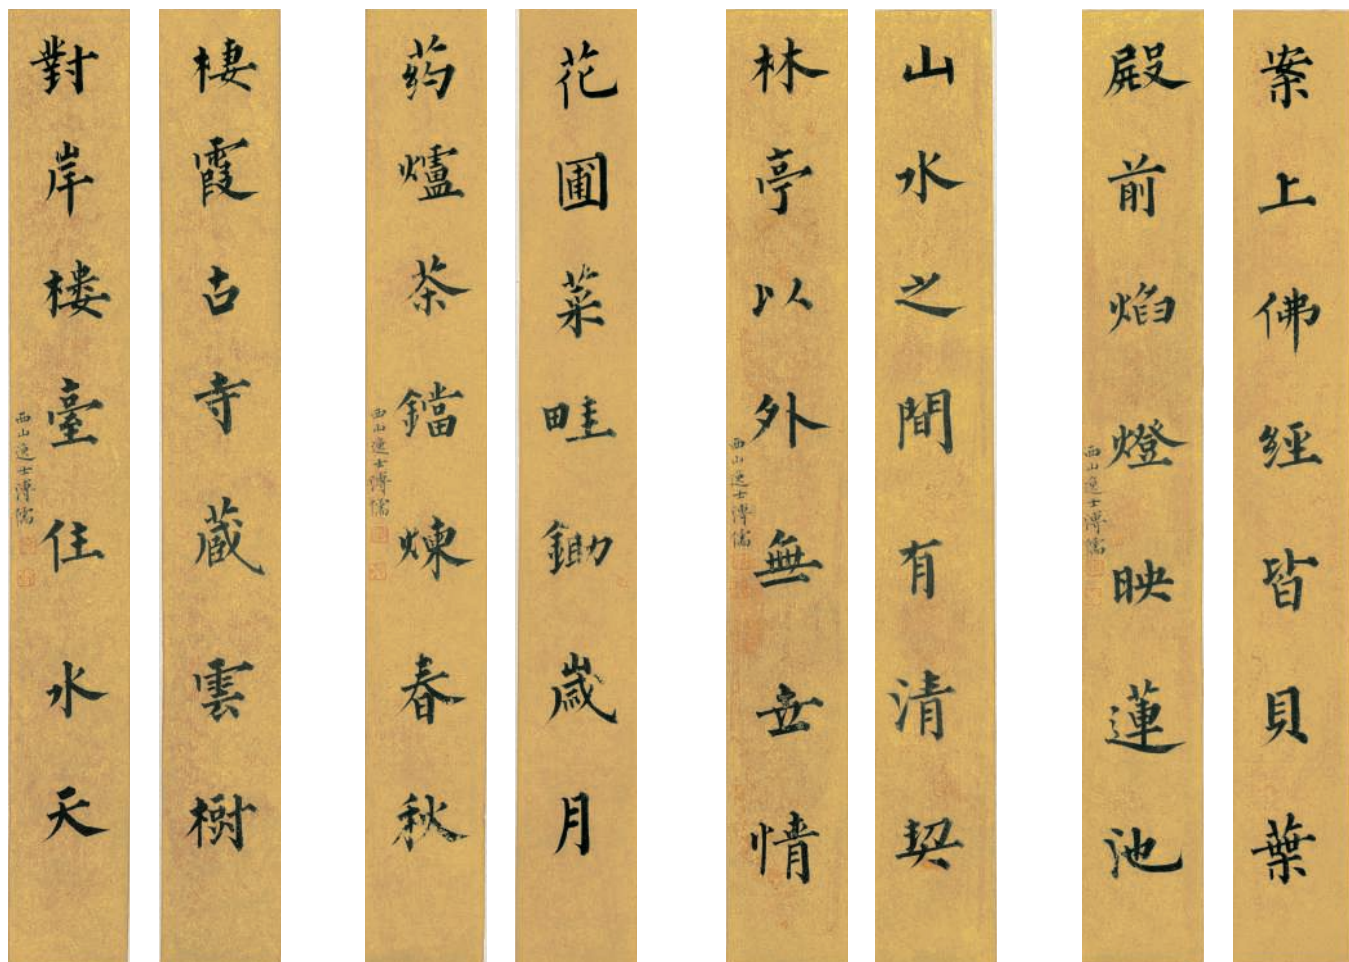 案上佛經皆貝葉
殿前焰燈映蓮池
西山逸士溥儒
山水之間有清契
林亭以外無世情
西山逸士溥儒
花圃菜畦鋤歲月
葯爐茶鐺煉春秋
西山逸士溥儒
棲霞古寺藏雲樹
對岸樓臺住水天
西山逸士溥儒